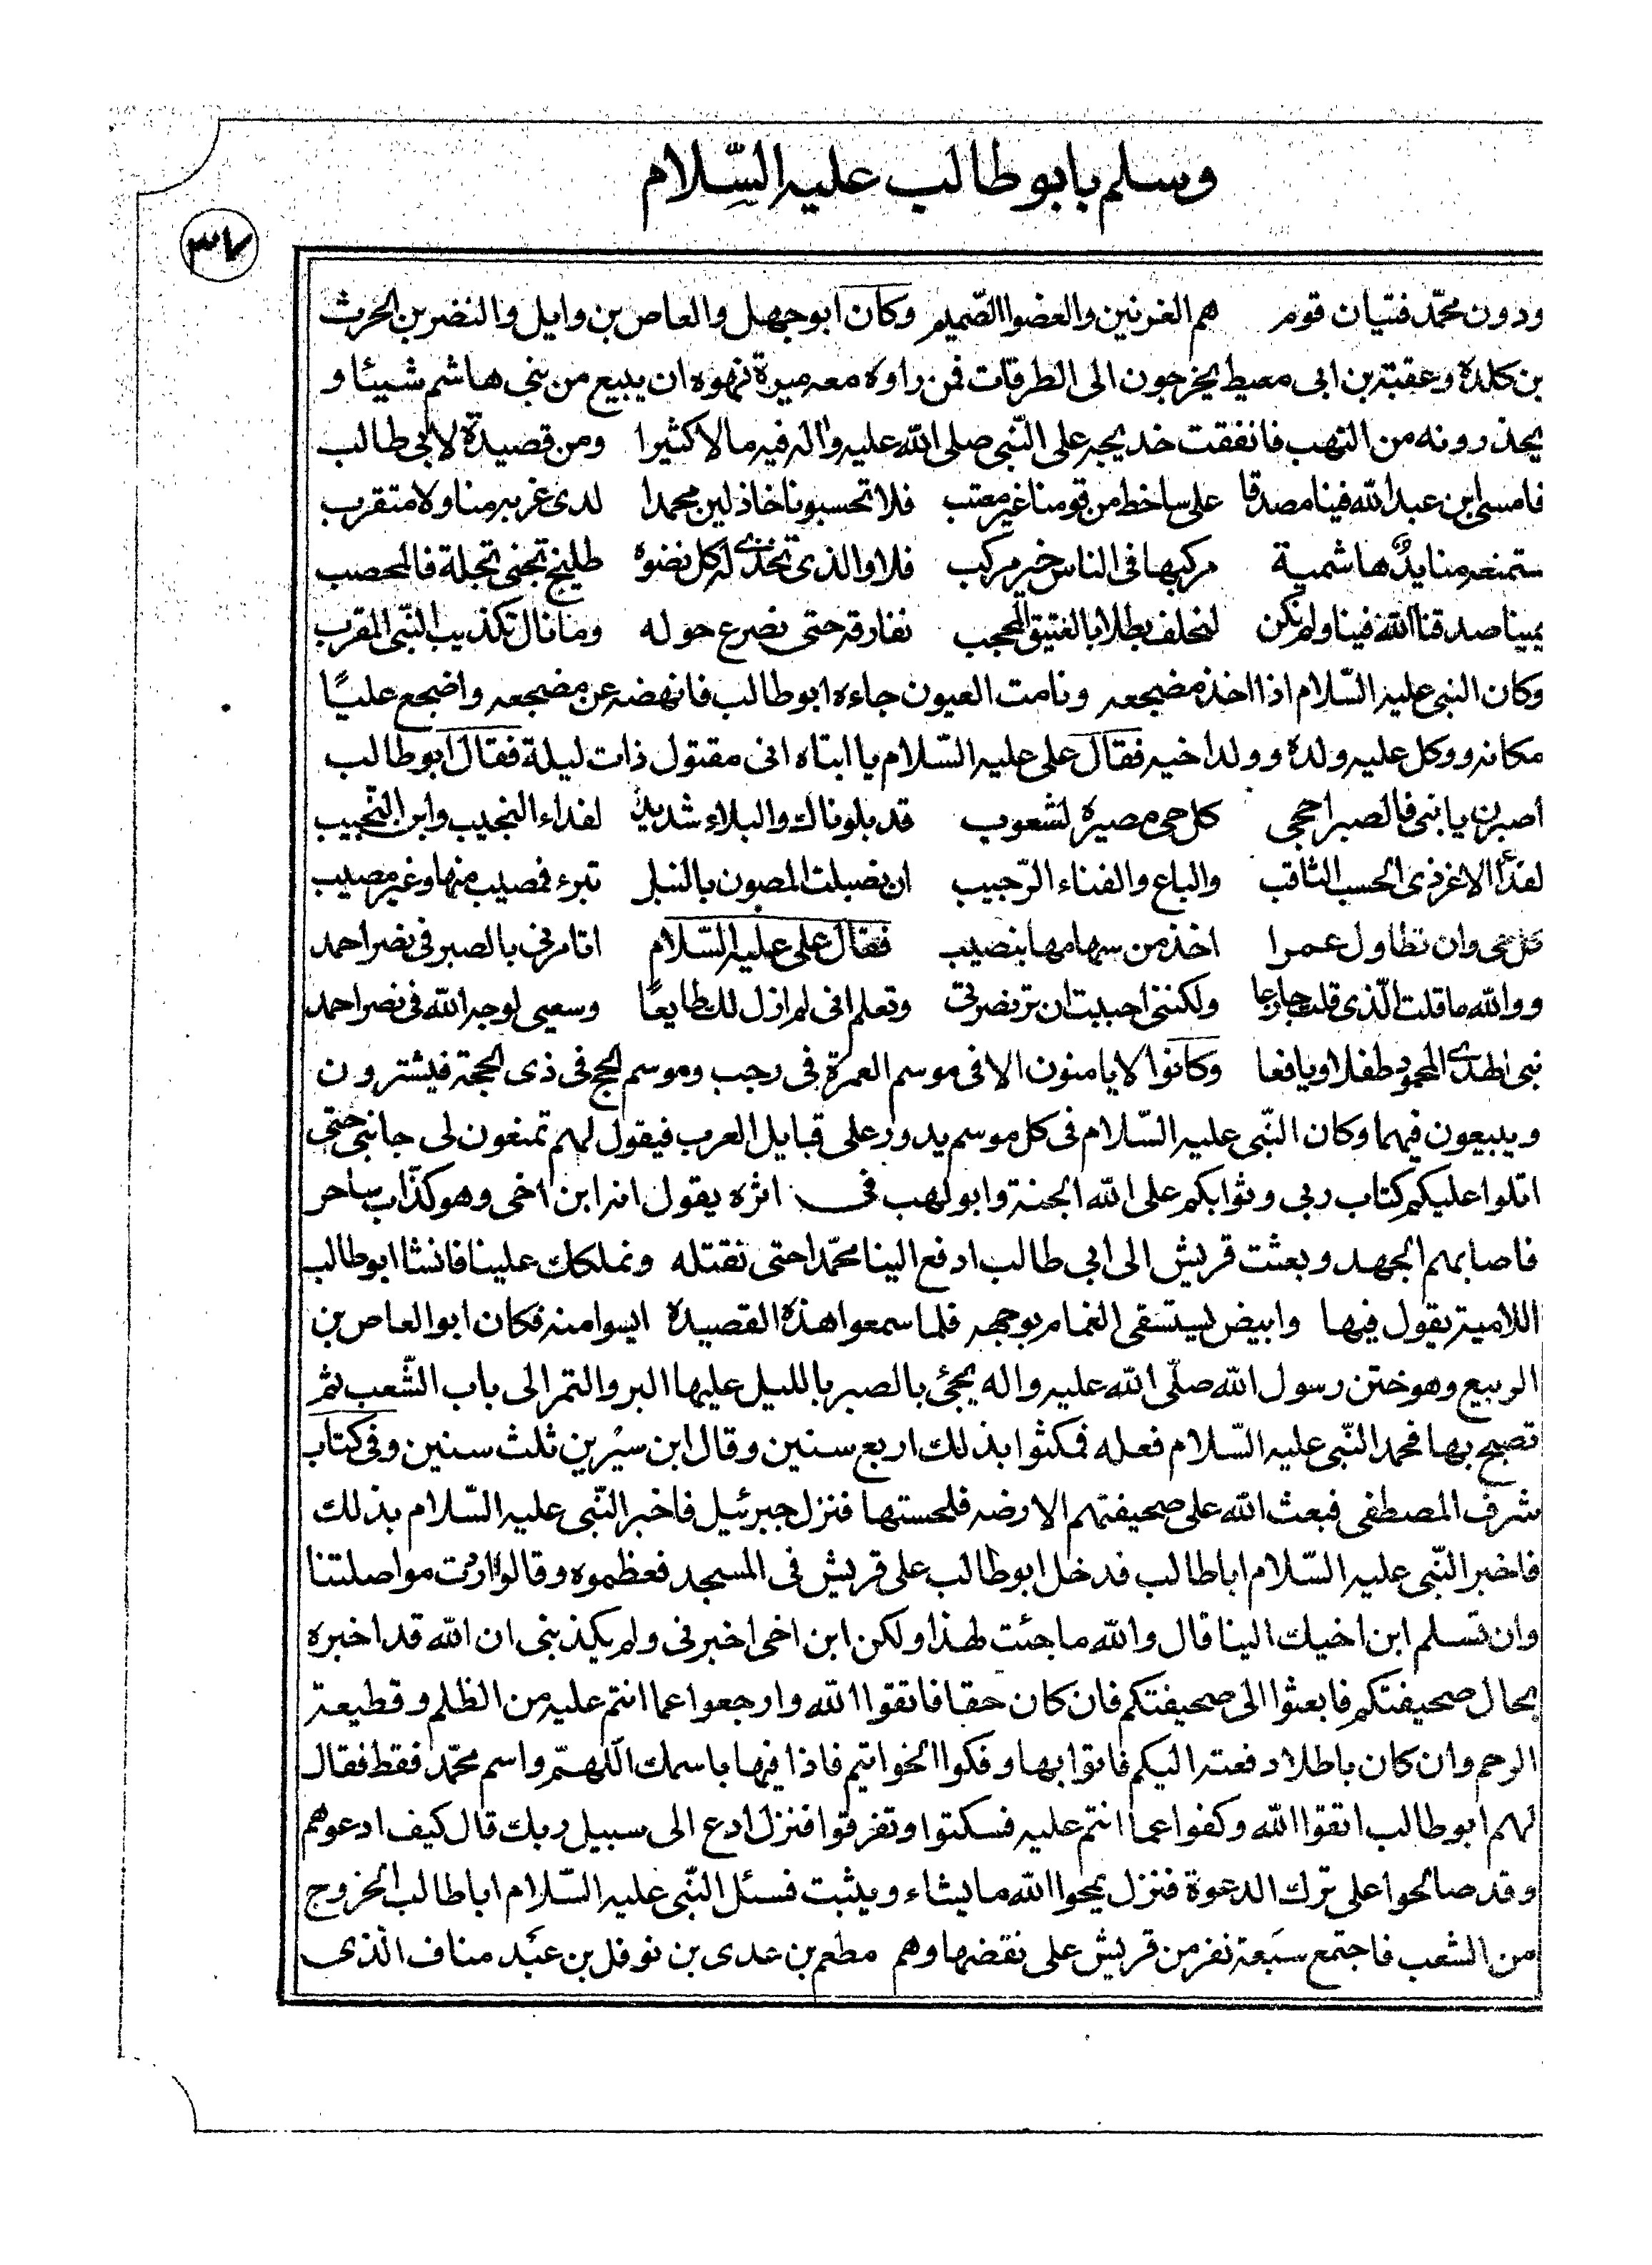 وسلم بابو طالب عليه السّلام
٣٧
ودون محمّد فتيان قوم هم العرنين والعضوا الصّميم وكان ابو جهل والعاص بن وايل والنضر بن الحرث
بن كلدة وعقبة بن ابى معيط يخرجون الى الطرقات فمن راوه معه ميرة نهوه ان يبيع من بنى هاشم شيئا و
يحذرونه من النهب فانفقت خديجه على النّبى صلى الله عليه واله فيه مالا كثيرا ومن قصيدة لابى طالب
فامسى ابن عبد الله فينا مصدقا على ساخط من قومنا غير معتب فلا تحسبونا خاذلين محمدا لدى غربه منا ولا متقرب
ستمنعه منا يدٌ هاشمية مركبها فى الناس خير مركب فلا والذى تخذى له كل نضوة طليح تجنى نحلة فالمحصب
يمينا صدقنا الله فينا ولم نكن لنحلف بطلا بالعتيق المحجب نفارقه حتى نصرع حوله وما نال تكذيب النّبى المقرب
وكان النبى عليه السّلام اذا اخذ مضجعه ونامت العيون جاءه ابو طالب فانهضه عن مضجعه واضجع عليًا
مكانه ووكل عليه ولده وولد اخيه فقال على عليه السّلام يا ابتاه انى مقتول ذات ليلة فقال ابو طالب
اصبرن يا بنى فالصبر احجى كل حى مصيره لشعوب قد بلوناك والبلاء شديد لفداء النجيب وابن النّجيب
لفداء الاغر ذى الحسب الثاقب والباع والفناء الرّحيب ان تصبك المصون بالنبل تبرء فمصيب منها وغير مصيب
كل حى وان تطاول عمرا اخذ من سهامها بنصيب فقال على عليه السّلام اتامرنى بالصبر فى نصر احمد
ووالله ما قلت الّذى قلت جازعا ولكننى احببت ان تر نصرتى وتعلم انى لم ازل لك طايعًا وسعيى لوجه الله فى نصر احمد
نبى الهدى المحمود طفلا ويافعا وكانوا لا يامنون الا فى موسم العمرة فى رجب وموسم الحج فى ذى الحجة فيشترون
ويبيعون فيهما وكان النّبى عليه السّلام فى كل موسم يدور على قبايل العرب فيقول لهم تمنعون لى جانبى حتى
اتلوا عليكم كتاب ربى وثوابكم على الله الجنة وابو لهب فى اثره يقول انه ابن اخى وهو كذّاب ساحر
فاصابهم الجهد وبعثت قريش الى ابى طالب ادفع الينا محمّدا حتى نقتله ونملكك علينا فانشا ابو طالب
اللامية يقول فيها وابيض يستسقى الغمام بوجهه فلما سمعوا هذه القصيدة ايسوا منه فكان ابو العاص بن
الربيع وهو ختن رسول الله صلّى الله عليه واله يجئ بالصبر بالليل عليها البر والتمر الى باب الشّعب ثم
تصبح بها فحمد النّبى عليه السّلام فعله فمكثوا بذلك اربع سنين وقال ابن سيرين ثلث سنين وفى كتاب
شرف المصطفى فبعث الله على صحيفتهم الارضه فلحستها فنزل جبرئيل فاخبر النّبى عليه السّلام بذلك
فاخبر النّبى عليه السّلام ابا طالب فدخل ابو طالب على قريش فى المسجد فعظموه وقالوا اردت مواصلتنا
وان تسلم ابن اخيك الينا قال والله ما جئت لهذا ولكن ابن اخى اخبرنى ولم يكذبنى ان الله قد اخبره
بحال صحيفتكم فابعثوا الى صحيفتكم فان كان حقا فاتقوا الله وارجعوا عما انتم عليه من الظلم وقطيعة
الرحم وان كان باطلا دفعته اليكم فاتوا بها وفكوا الخواتيم فاذا فيها باسمك اللّهمّ واسم محمّد فقط فقال
لهم ابو طالب اتقوا الله وكفوا عما انتم عليه فسكتوا وتفرقوا فنزل ادع الى سبيل ربك قال كيف ادعوهم
وقد صالحوا على ترك الدعوة فنزل يمحوا الله ما يشاء ويثبت فسئل النّبى عليه السّلام ابا طالب الخروج
من الشعب فاجتمع سبعة نفر من قريش على نقضها وهم مطعم بن عدى بن نوفل بن عبد مناف الّذى